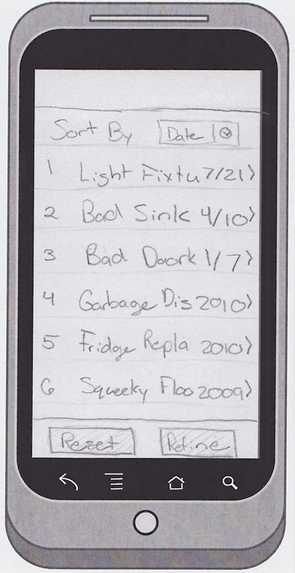 Sort By Date
1 Light Fixtu 7/21 >
2 Bad Sink 4/10 >
3 Bad Doork 1/7 >
4 Garbage Dis 2010 >
5 Fridge Repla 2010 >
6 Squeeky Floo 2009 >
Reset Refine